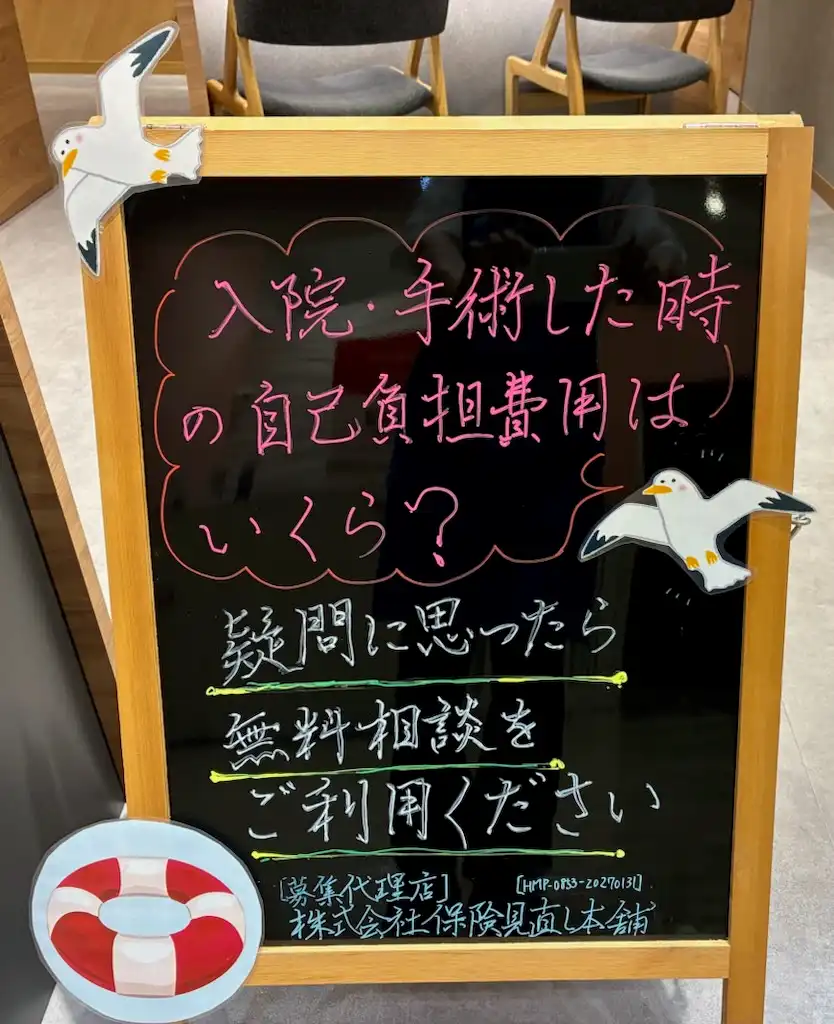 入院・手術した時
の自己負担費用は
いくら?
疑問に思ったら
無料相談を
ご利用ください
[募集代理店] [HMP-0853-20270131]
株式会社保険見直し本舗